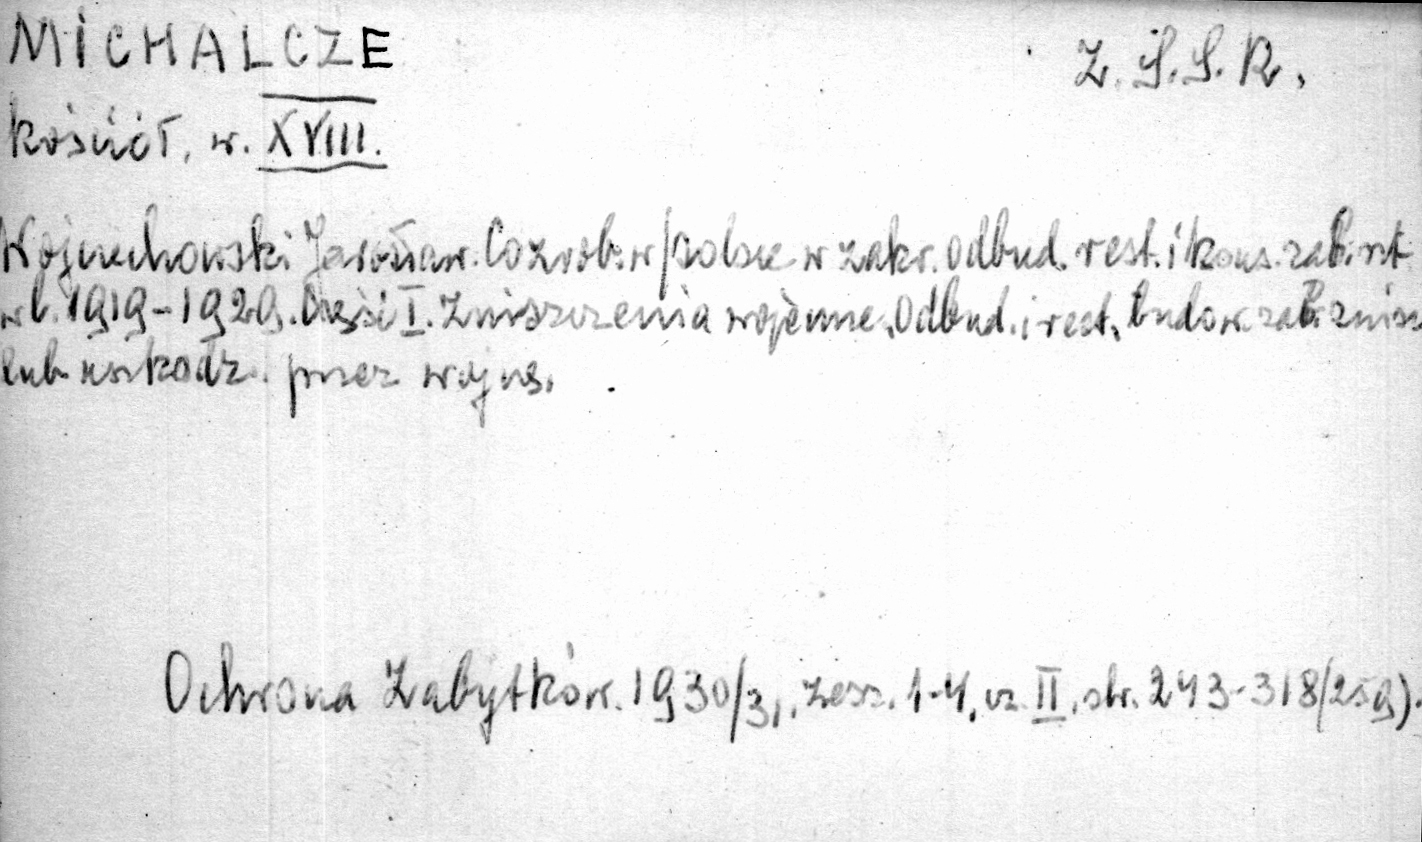 MICHALCZE
Z.S.S.R.
kościół, w. XVIII.
Wojciechowski Jarosław. Co zrob. w Polsce w zakr. odbud. rest. i kons. zab. szt
w l. 1919-1929. Część I. Zniszczenia wojenne, Odbud. i rest. budow. zab. znisz
lub uszkodz. przez wojnę.
Ochrona Zabytków. 1930/31, zesz. 1-4, cz. II, str. 243-318/259).